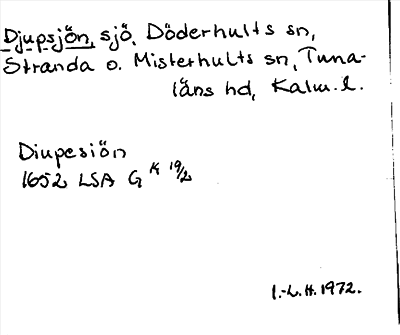 Djupsjön, sjö, Döderhults sn,
Stranda o. Misterhults sn, Tuna-
läns hd, Kalm. l.
Diupesiön
1652 LSA G K 19/2
I.-L.H. 1972.